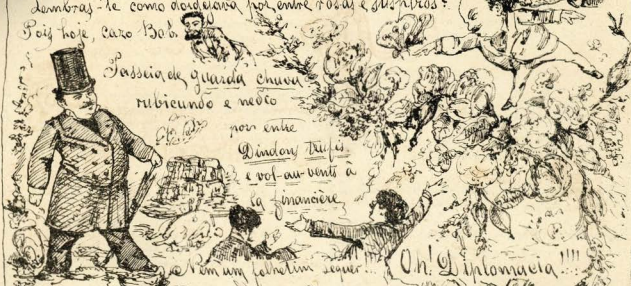 Lembras-te como doidejava por entre rosas e suspiros?
Pois hoje, caro Bob.
Passeia de guarda chuva
rubicundo e nedeo
por entre
Dindons truffés
e vol-au-vents a
la financiere
Nem um folhetim sequer!!!
Oh! Diplomacia!!!!